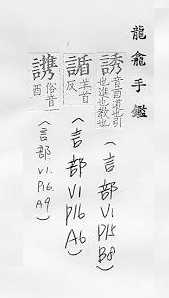 龍龕手鑑
誘
音酉道也引
也進也教也
(言部V1P15B8)
羊首
反
(言部V1P16A6)
俗音
酉
(言部V1.P16.A9)